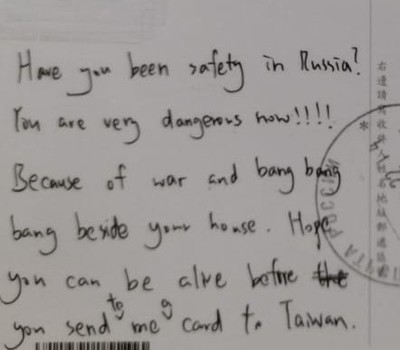 Have you been safety in Russia?
You are very dangerous now!!!!
Because of war and bang bang
bang beside your house. Hope
you can be alive before
you send to me a card to Taiwan.